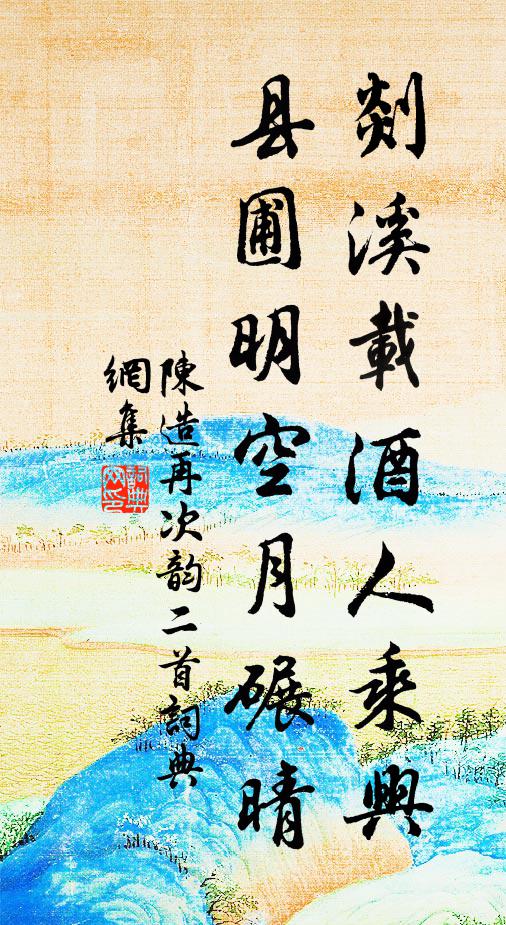 剡溪載酒人乘興
县圃明空月碾晴
陳造再次韵二首詞典
網集